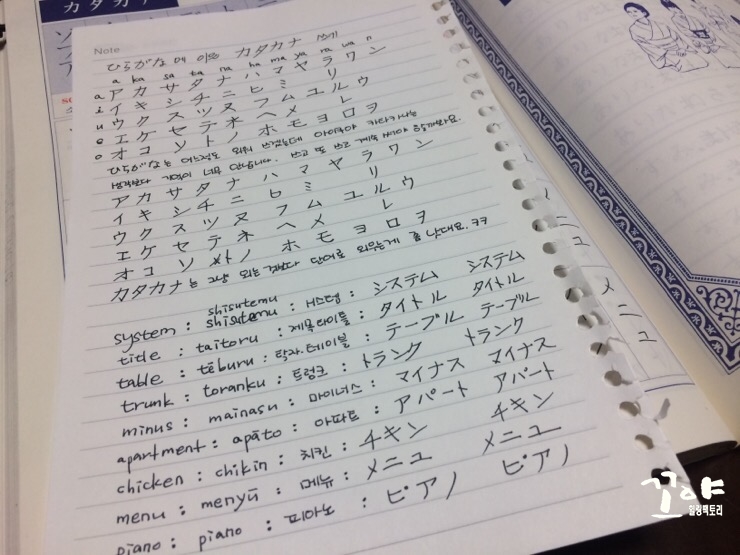 カタカナ
Note
ひらがな에 이은 カタカナ 쓰기
a ka sa ta na ha ma ya ra wa n
a ア カ サ タ ナ ハ マ ヤ ラ ワ ン
i イ キ シ チ ニ ヒ ミ リ
u ウ ク ス ツ ヌ フ ム ユ ル ウ
e エ ケ セ テ ネ ヘ メ レ
o オ コ ソ ト ノ ホ モ ヨ ロ ヲ
ひらがな는 어느정도 외워 쓰겠는데 아이고야 카타카나는
생각보다 기억이 너무 안납니다. 쓰고 또 쓰고 계속 써야 하려나봐요.
ア カ サ タ ナ ハ マ ヤ ラ ワ ン
イ キ シ チ ニ ヒ ミ リ
ウ ク ス ツ ヌ フ ム ユ ル ウ
エ ケ セ テ ネ ヘ メ レ
オ コ ソ ト ノ ホ モ ヨ ロ ヲ
カタカナ는 그냥 외는 것보다 단어로 외우는게 좀 낫대요. ㅋㅋ
shisutemu
system : shisutemu : 시스템 : システム システム
title : taitoru : 제목.타이틀 : タイトル タイトル
table : tēburu : 탁자.테이블 : テーブル テーブル
trunk : toranku : 트렁크 : トランク トランク
minus : mainasu : 마이너스 : マイナス マイナス
apartment : apāto : 아파트 : アパート アパート
chicken : chikin : 치킨 : チキン チキン
menu : menyū : 메뉴 : メニュ メニュー
piano : piano : 피아노 : ピアノ ピアノ
ニ
ュ
メ
ニ
ュ
꼬야
일랑팩토리